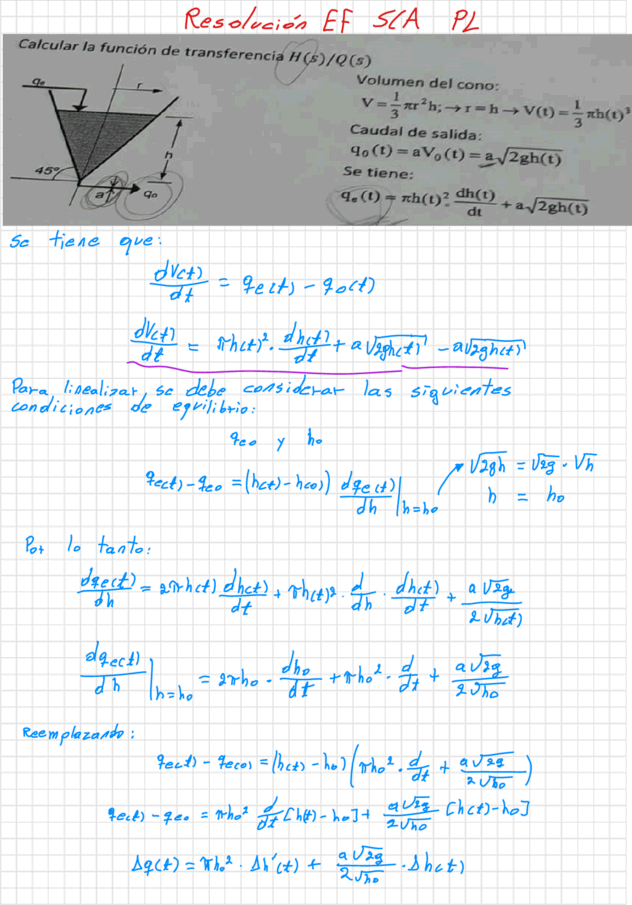 Resolución EF S/A PL
Calcular la función de transferencia H(s)/Q(s)
qₑ
r
h
45°
a
q₀
Volumen del cono:
V = 1/3 πr²h; → r = h → V(t) = 1/3 πh(t)³
Caudal de salida:
q₀(t) = aV₀(t) = a√2gh(t)
Se tiene:
qₑ(t) = πh(t)² dh(t)/dt + a√2gh(t)
Se tiene que:
dV(t)/dt = qe(t) - qo(t)
dV(t)/dt = πh(t)² · dh(t)/dt + a√2gh(t) - a√2gh(t)
Para linealizar, se debe considerar las siguientes
condiciones de equilibrio:
qeo y ho
qe(t) - qeo = (h(t) - h(0)) dqe(t)/dh |h=ho
√2gh = √2g · √h
h = ho
Por lo tanto:
dqe(t)/dh = 2πh(t) dh(t)/dt + πh(t)² · d/dh · dh(t)/dt + a√2g/2√h(t)
dqe(t)/dh |h=ho = 2πho · dho/dt + πho² · d/dt + a√2g/2√ho
Reemplazando:
qe(t) - qe(0) = (h(t) - ho) (πho² · d/dt + a√2g/2√ho)
qe(t) - qeo = πho² d/dt [h(t) - ho] + a√2g/2√ho [h(t) - ho]
Δq(t) = πho² · Δh'(t) + a√2g/2√ho · Δh(t)